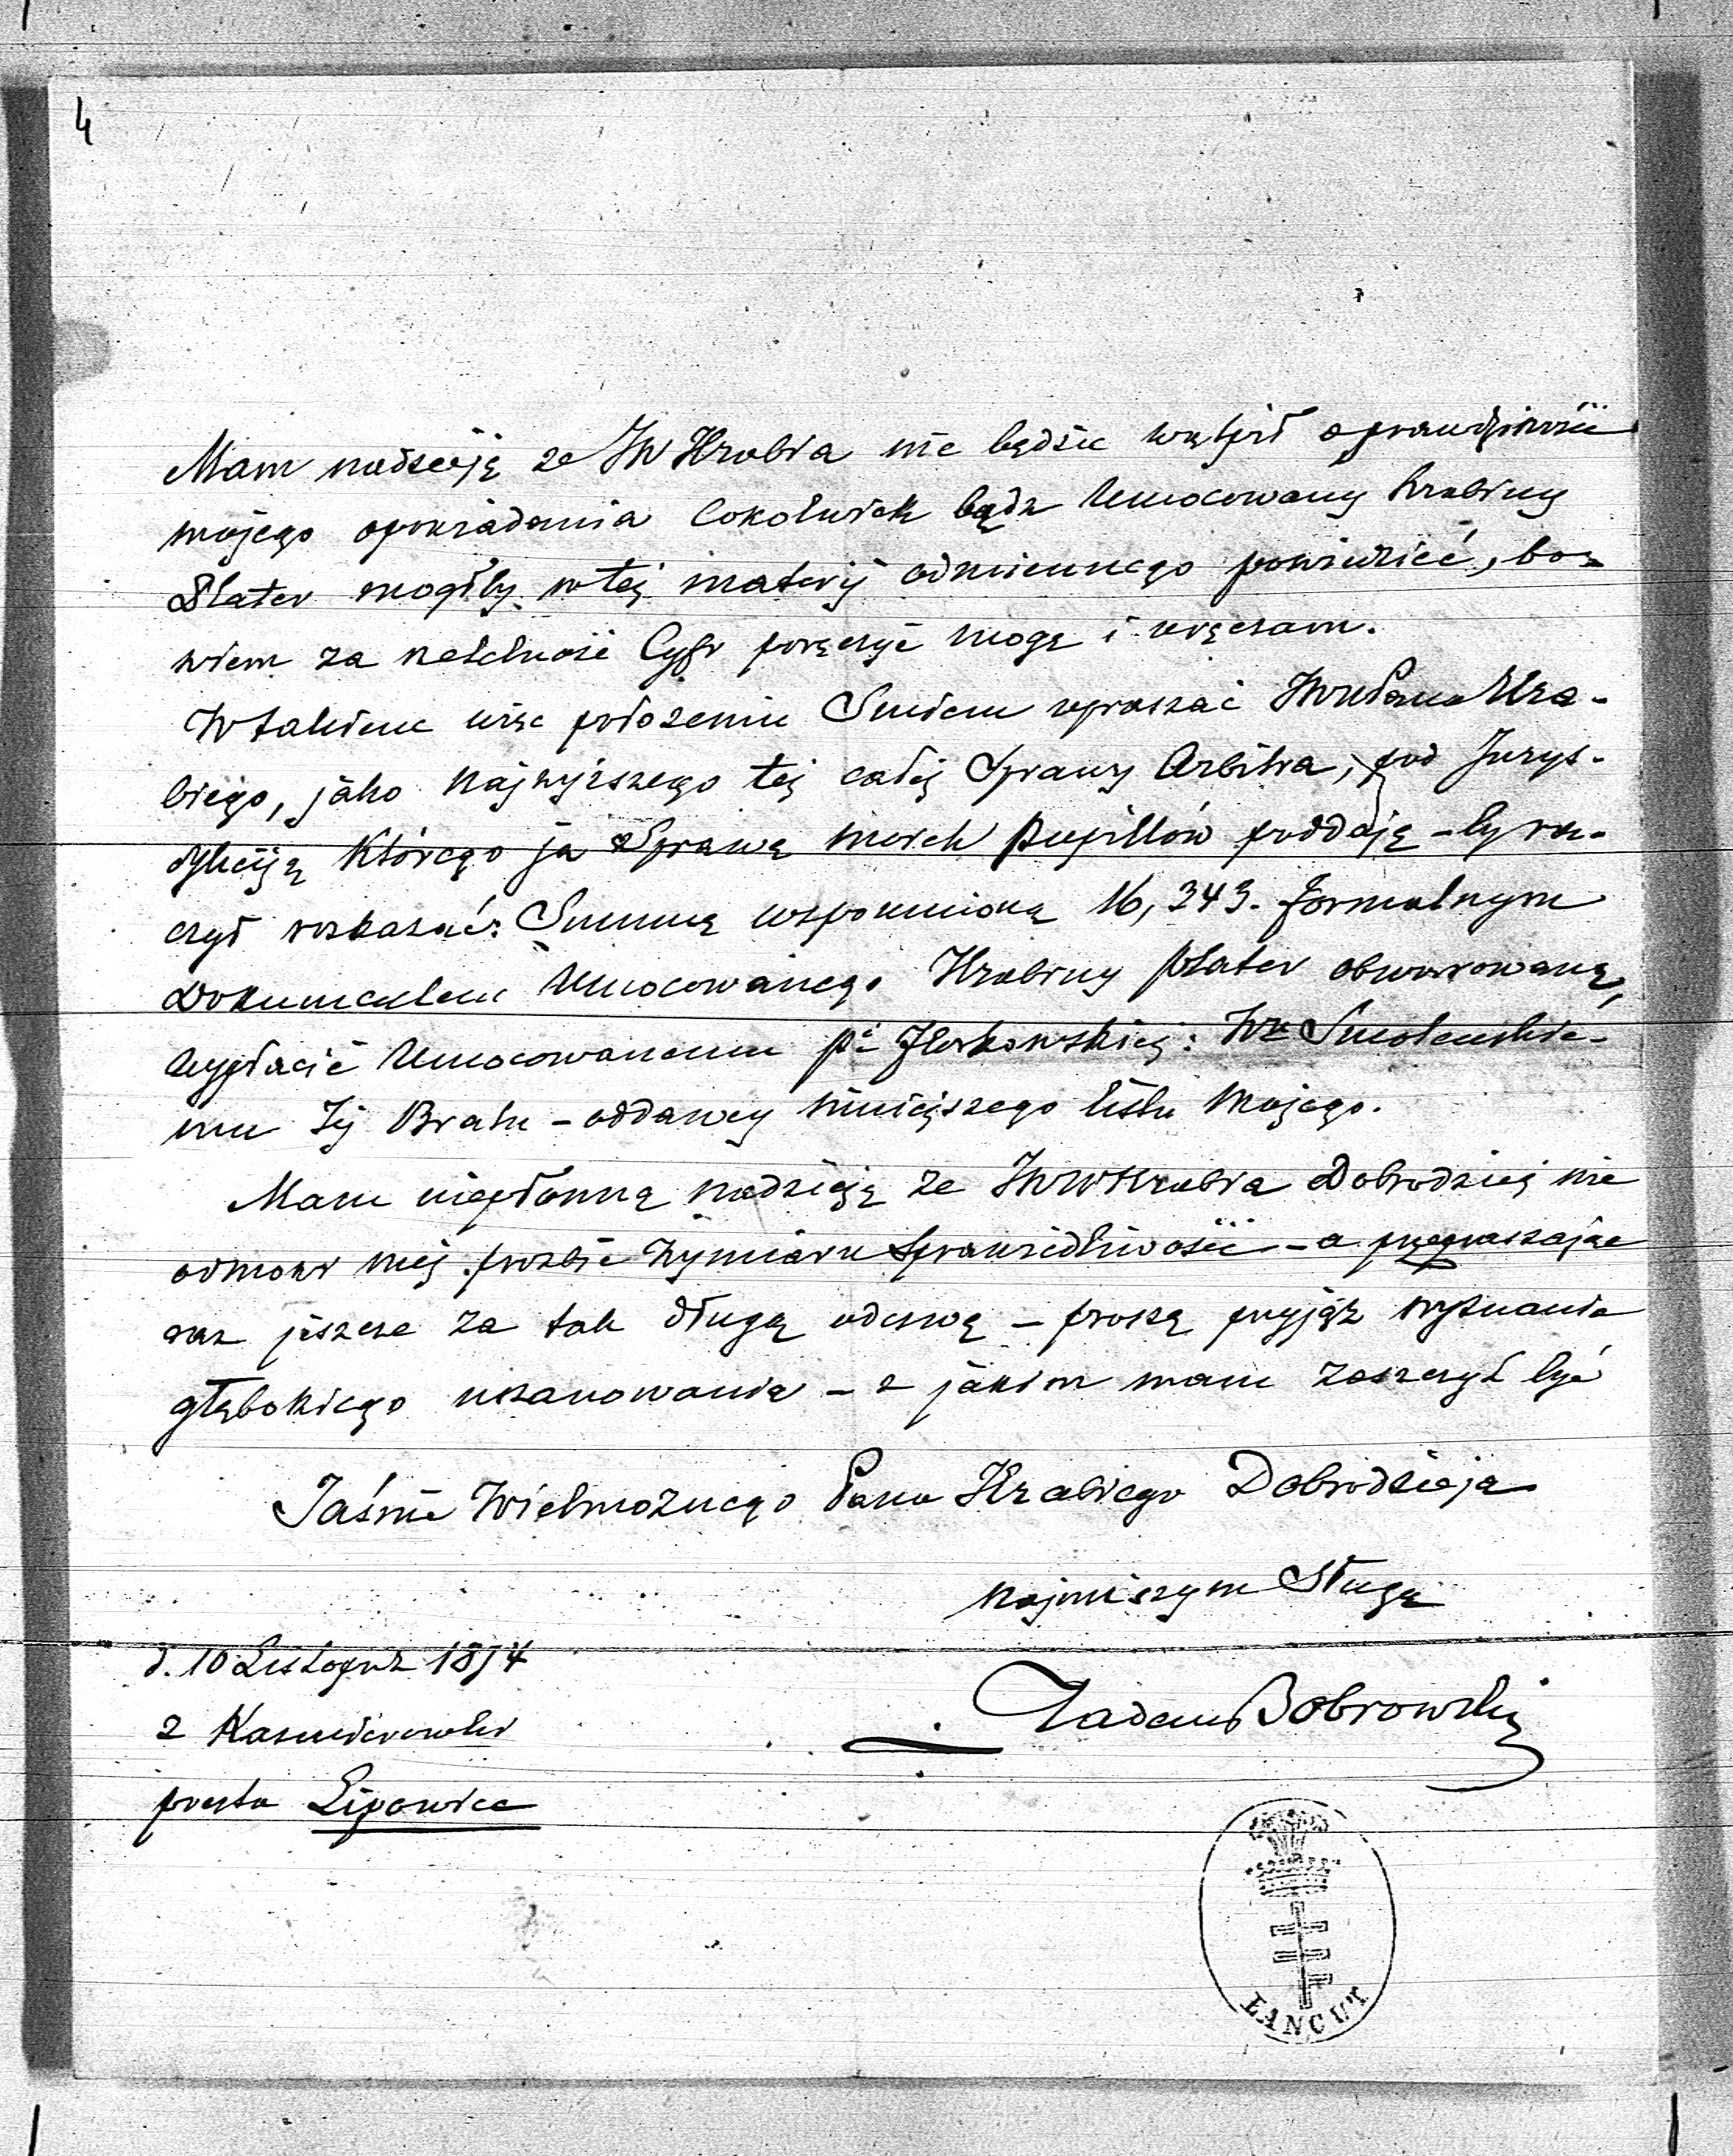 4
Mam nadzieję że JW Hrabia nie będzie wątpił o prawdziwości
mojego opowiadania cokolwiek bądź Umocowany hrabiny
Plater mógłby w tej materij odmiennego powiedzieć, bo-
wiem za rzetelność Cyfr poręczyć mogę i ręczam.
W takiem więc położeniu Smiem upraszać JW Pana Hra-
biego, jako najwyższego tej całej Sprawy Arbitra, pod Jurys-
dykciją którego ja Sprawę moich pupillów poddaję - by ra-
czył rozkazać: Summę wspomnioną 16,343. formalnym
Dokumentem Umocowanego Hrabiny Plater obwarowaną,
wypłacić Umocowanemu
mu Jej Bratu - oddawcy niniejszego listu mojego.
Mam niepłonną nadzieję że JWW Hrabia Dobrodziej nie
odmówi mej prozbie wymiaru Sprawiedliwości - a przepraszając
raz jeszcze za tak długą odezwę - proszę przyjąć wyznanie
głębokiego uszanowania - z jakim mam zaszczyt być
Jaśnie Wielmożnego Pana Hrabiego Dobrodzieja
najniższym Sługą
d. 10 Listopad 1874
Tadeusz Bobrowski
z Kazimierowki
poczta Lipowiec
ŁAŃCUT